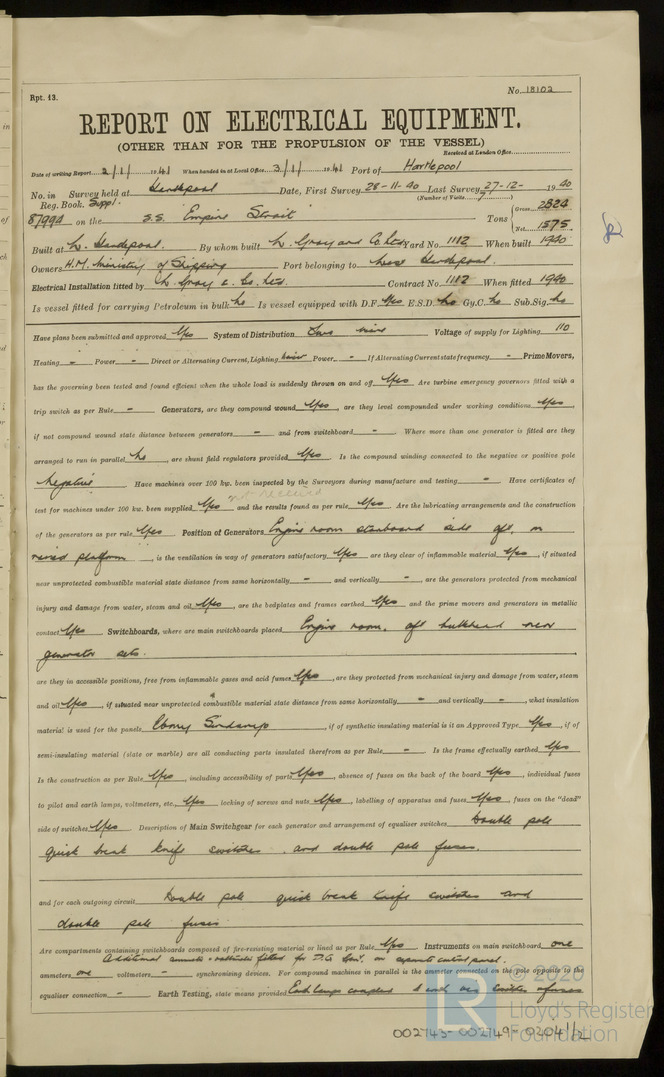 Rpt. 13.
No. 18102
REPORT ON ELECTRICAL EQUIPMENT.
(OTHER THAN FOR THE PROPULSION OF THE VESSEL)
Received at London Office
Date of writing Report 2/1/ 1941 When handed in at Local Office 3/1/ 1941 Port of Hartlepool
No. in Survey held at Hartlepool Date, First Survey 28-11-40 Last Survey 27-12- 1940
Reg. Book. Suppl. (Number of Visits 7)
87994 on the S.S. Empire Strait Tons { Gross 2824 Net 1575
Built at W. Hartlepool. By whom built W. Gray and Co. Ltd. Yard No. 1112 When built 1940
Owners H.M. Ministry of Shipping Port belonging to West Hartlepool.
Electrical Installation fitted by W. Gray & Co. Ltd. Contract No. 1112 When fitted 1940
Is vessel fitted for carrying Petroleum in bulk No Is vessel equipped with D.F. Yes E.S.D. No Gy.C. No Sub.Sig. No
Have plans been submitted and approved Yes System of Distribution Two wire Voltage of supply for Lighting 110
Heating - Power - Direct or Alternating Current, Lighting Power - If Alternating Current state frequency - Prime Movers,
has the governing been tested and found efficient when the whole load is suddenly thrown on and off Yes Are turbine emergency governors fitted with a
trip switch as per Rule - Generators, are they compound wound Yes, are they level compounded under working conditions Yes,
if not compound wound state distance between generators - and from switchboard - Where more than one generator is fitted are they
arranged to run in parallel No, are shunt field regulators provided Yes Is the compound winding connected to the negative or positive pole
Negative Have machines over 100 kw. been inspected by the Surveyors during manufacture and testing - Have certificates of
not received
test for machines under 100 kw. been supplied Yes and the results found as per rule Yes Are the lubricating arrangements and the construction
of the generators as per rule Yes Position of Generators Engine room starboard side aft, on
raised platform, is the ventilation in way of generators satisfactory Yes are they clear of inflammable material Yes, if situated
near unprotected combustible material state distance from same horizontally - and vertically -, are the generators protected from mechanical
injury and damage from water, steam and oil Yes, are the bedplates and frames earthed Yes and the prime movers and generators in metallic
contact Yes Switchboards, where are main switchboards placed Engine room, aft bulkhead near
generator sets.
are they in accessible positions, free from inflammable gases and acid fumes Yes, are they protected from mechanical injury and damage from water, steam
and oil Yes, if situated near unprotected combustible material state distance from same horizontally - and vertically -, what insulation
material is used for the panels Ebony Sindanyo, if of synthetic insulating material is it an Approved Type Yes, if of
semi-insulating material (slate or marble) are all conducting parts insulated therefrom as per Rule - Is the frame effectually earthed Yes
Is the construction as per Rule Yes, including accessibility of parts Yes, absence of fuses on the back of the board Yes, individual fuses
to pilot and earth lamps, voltmeters, etc. Yes locking of screws and nuts Yes, labelling of apparatus and fuses Yes, fuses on the "dead"
side of switches Yes Description of Main Switchgear for each generator and arrangement of equaliser switches Double pole
quick break knife switches and double pole fuses.
and for each outgoing circuit Double pole quick break knife switches and
double pole fuses
Are compartments containing switchboards composed of fire-resisting material or lined as per Rule Yes Instruments on main switchboard one
Additional ammeter & voltmeter fitted for D.G. on separate control panel.
ammeters one voltmeters - synchronising devices. For compound machines in parallel is the ammeter connected on the pole opposite to the
equaliser connection - Earth Testing, state means provided Earth lamps coupled to earth via switches & fuses
© 2020
LR
Lloyd's Register
Foundation
002743-002749-0204 1/2